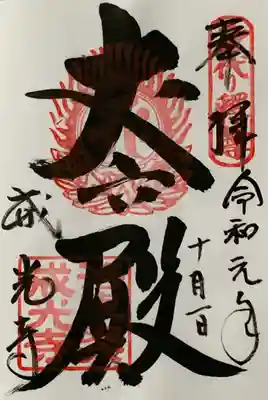 奉拝
令和元年
十月一日
丈六殿
戒光寺